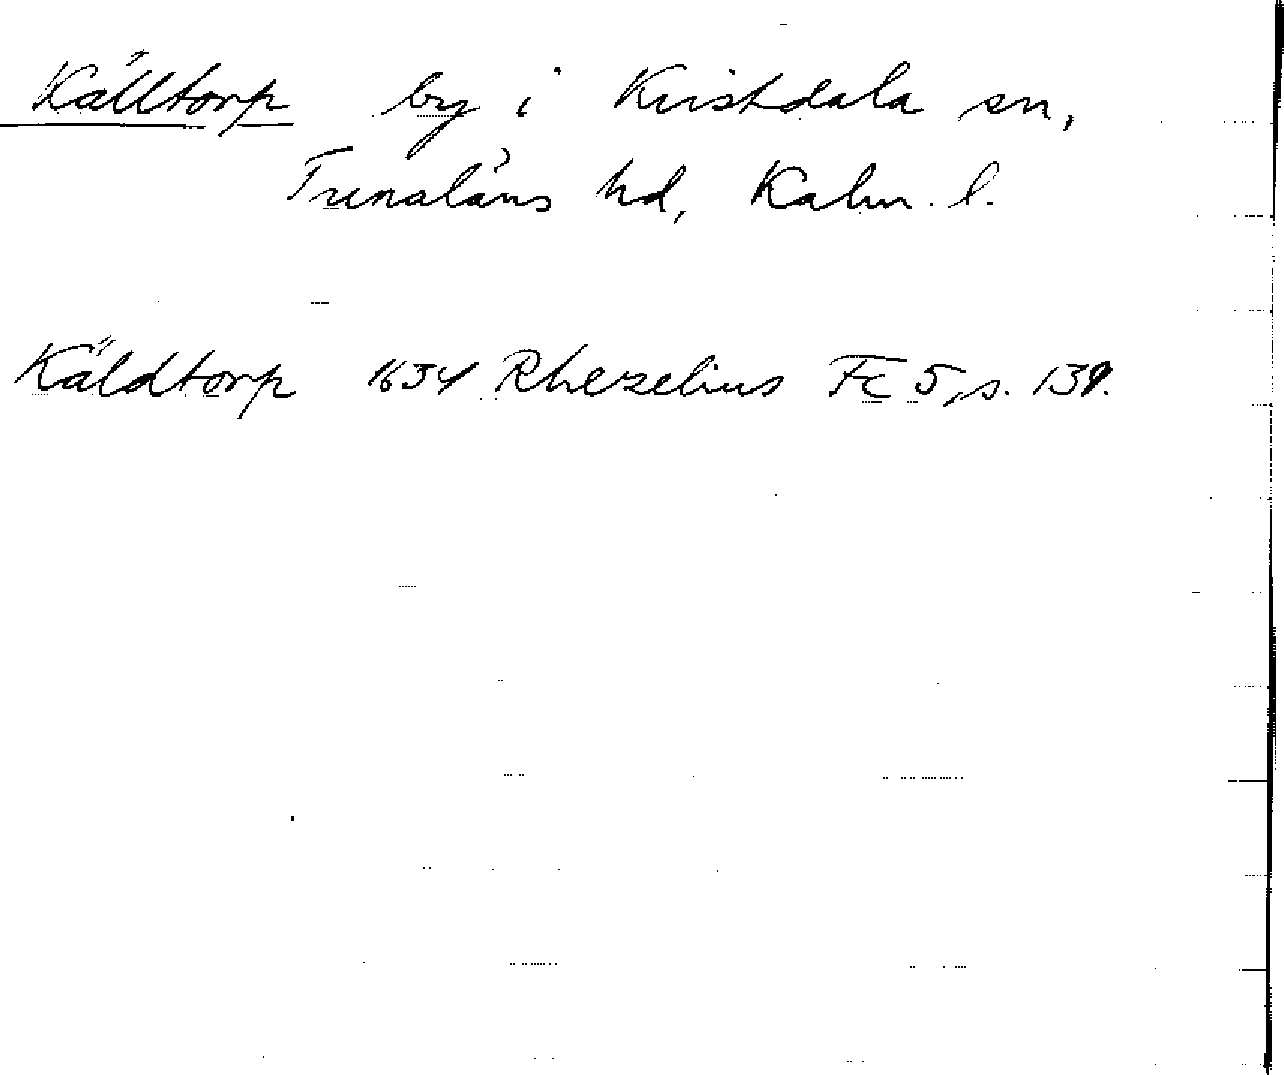 Källtorp by i Kristdala sn,
Tunaläns hd, Kalm. l.
Käldtorp 1634 Rhezelius Fc 5, s. 139.